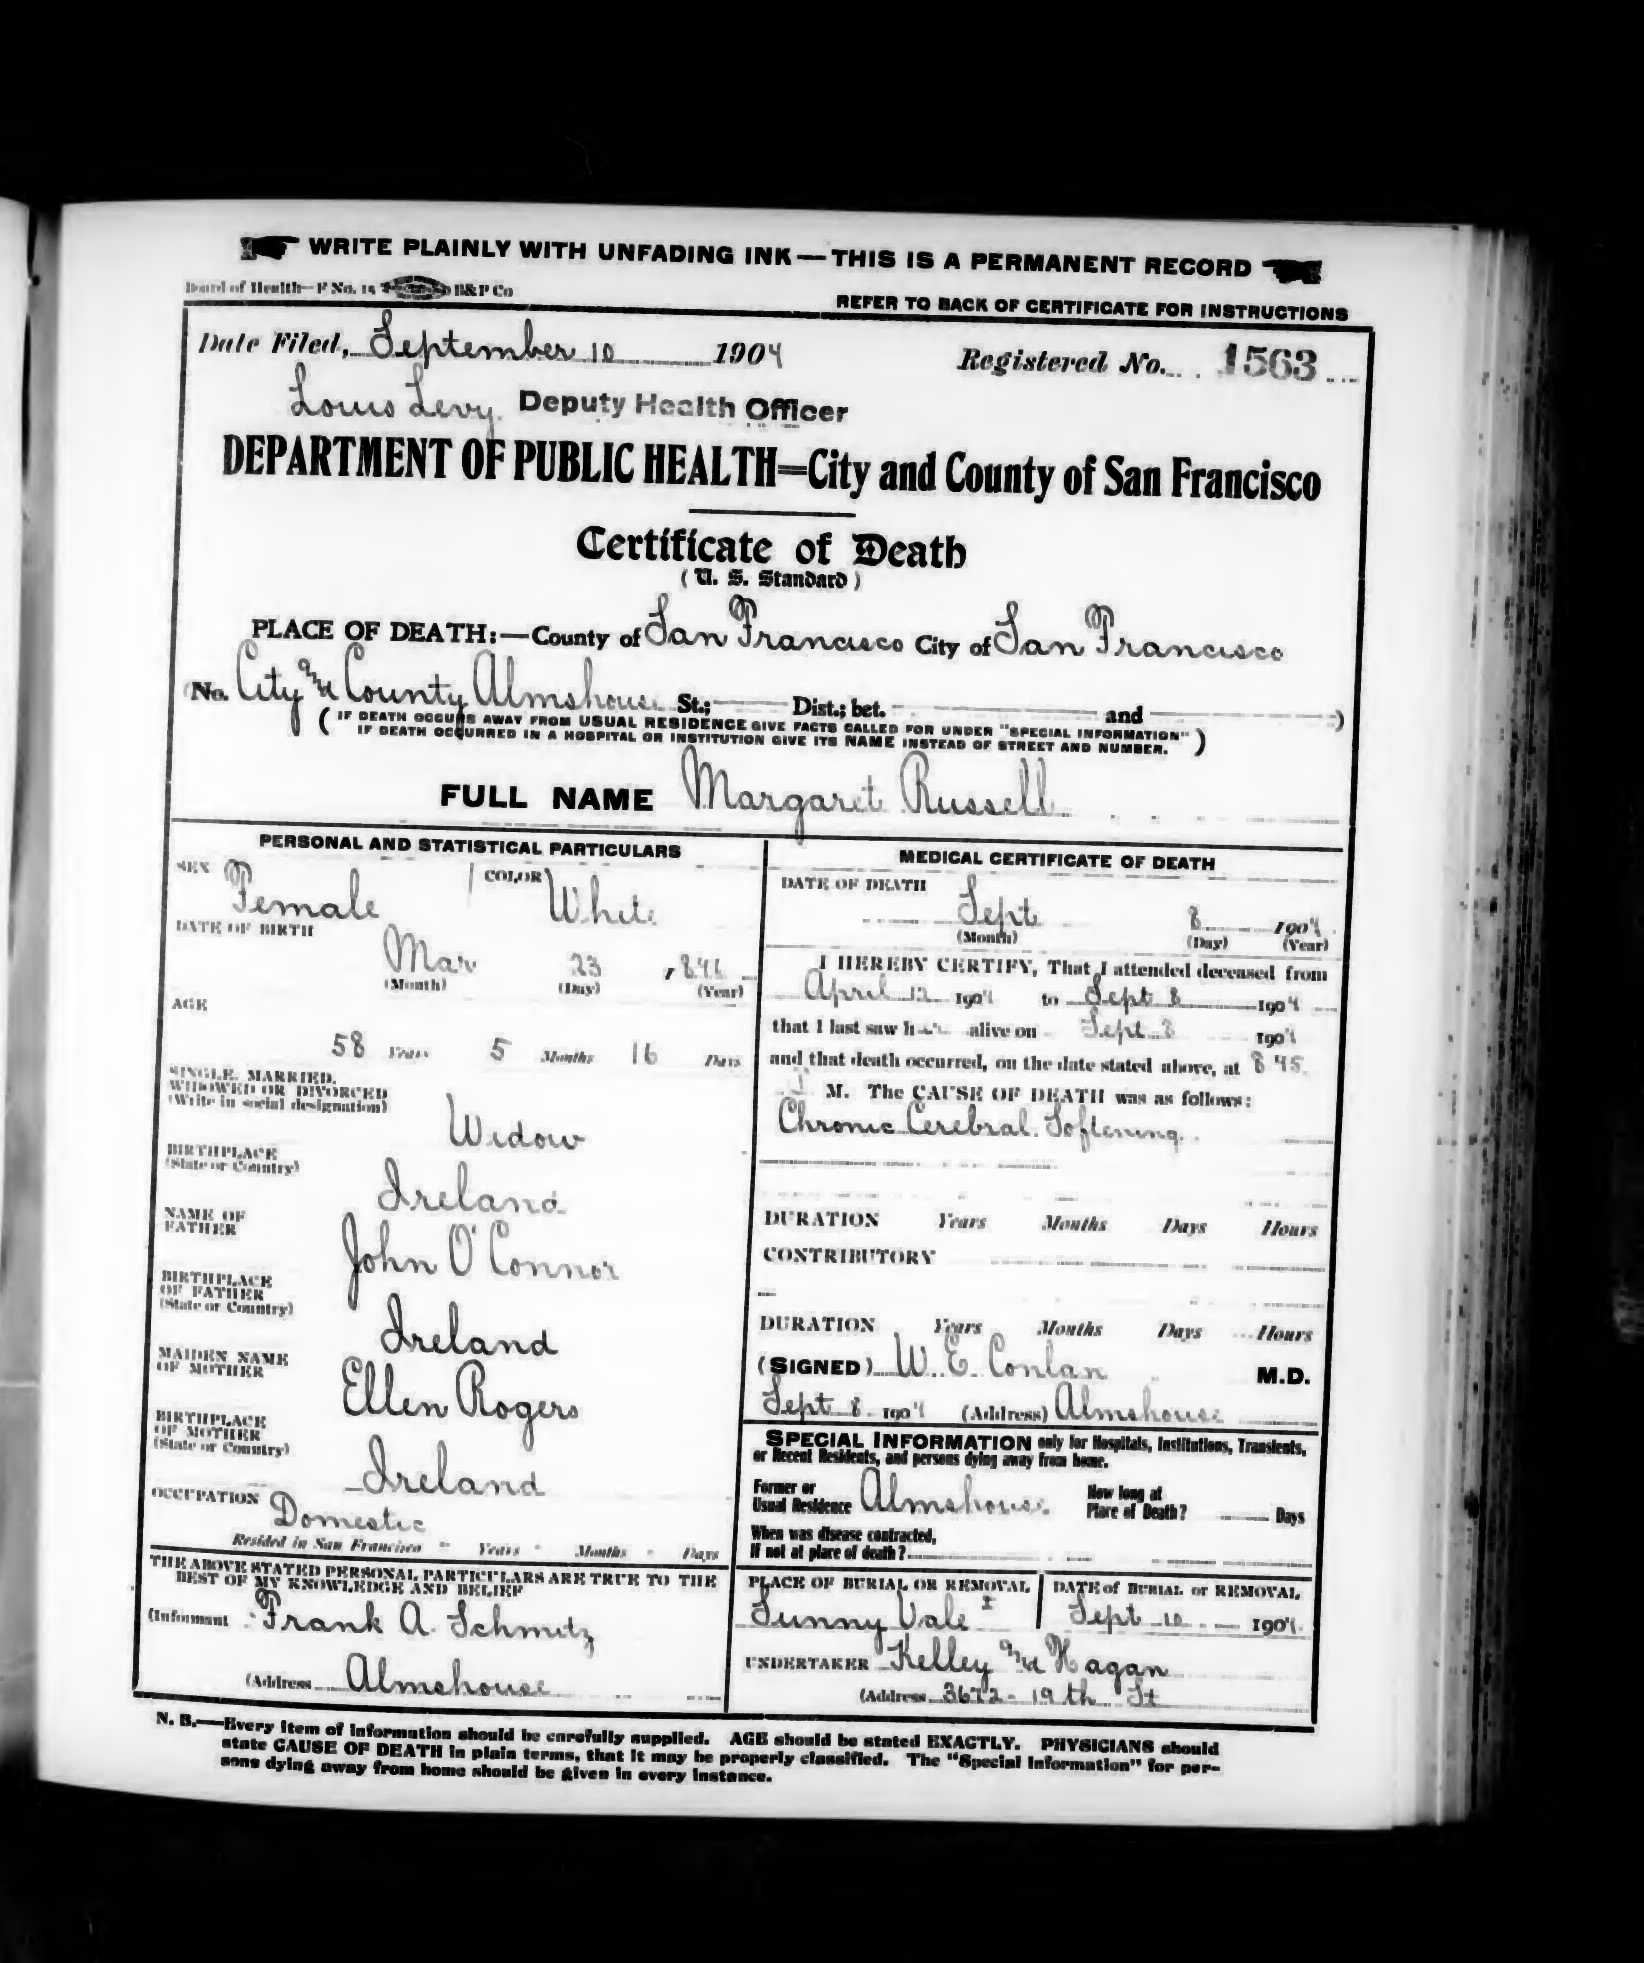 WRITE PLAINLY WITH UNFADING INK—THIS IS A PERMANENT RECORD
Board of Health—F No. 15 B&P Co
REFER TO BACK OF CERTIFICATE FOR INSTRUCTIONS
Date Filed, September 10 1904 Registered No. 1563
Louis Levy Deputy Health Officer
DEPARTMENT OF PUBLIC HEALTH=City and County of San Francisco
Certificate of Death
(U. S. Standard)
PLACE OF DEATH:—County of San Francisco City of San Francisco
(No. City and County Almshouse St.; Dist.; bet. and )
(IF DEATH OCCURS AWAY FROM USUAL RESIDENCE GIVE FACTS CALLED FOR UNDER "SPECIAL INFORMATION"
IF DEATH OCCURRED IN A HOSPITAL OR INSTITUTION GIVE ITS NAME INSTEAD OF STREET AND NUMBER.)
FULL NAME Margaret Russell
PERSONAL AND STATISTICAL PARTICULARS
SEX Female COLOR White
DATE OF BIRTH
Mar 23 , 846
(Month) (Day) (Year)
AGE
58 Years 5 Months 16 Days
SINGLE, MARRIED,
WIDOWED OR DIVORCED
(Write in social designation)
Widow
BIRTHPLACE
(State or Country)
Ireland
NAME OF
FATHER
John O'Connor
BIRTHPLACE
OF FATHER
(State or Country)
Ireland
MAIDEN NAME
OF MOTHER
Ellen Rogers
BIRTHPLACE
OF MOTHER
(State or Country)
Ireland
OCCUPATION Domestic
Resided in San Francisco - Years - Months - Days
THE ABOVE STATED PERSONAL PARTICULARS ARE TRUE TO THE
BEST OF MY KNOWLEDGE AND BELIEF
(Informant Frank A. Schmitz
(Address Almshouse
MEDICAL CERTIFICATE OF DEATH
DATE OF DEATH
Sept 8 1904
(Month) (Day) (Year)
I HEREBY CERTIFY, That I attended deceased from
April 12 1904 to Sept 8 1904
that I last saw her alive on Sept 8 1904
and that death occurred, on the date stated above, at 8 45
M. The CAUSE OF DEATH was as follows:
Chronic Cerebral Softening
DURATION Years Months Days Hours
CONTRIBUTORY
DURATION Years Months Days Hours
(SIGNED) W. E. Conlan M.D.
Sept 8 1904 (Address) Almshouse
SPECIAL INFORMATION only for Hospitals, Institutions, Transients,
or Recent Residents, and persons dying away from home.
Former or
Usual Residence Almshouse
How long at
Place of Death? Days
When was disease contracted,
If not at place of death?
PLACE OF BURIAL OR REMOVAL
Sunny Vale
DATE of BURIAL or REMOVAL
Sept 10 1904
UNDERTAKER Kelley and Hagan
(Address 3672 - 19th St
N. B.—Every item of information should be carefully supplied. AGE should be stated EXACTLY. PHYSICIANS should
state CAUSE OF DEATH in plain terms, that it may be properly classified. The "Special Information" for per-
sons dying away from home should be given in every instance.